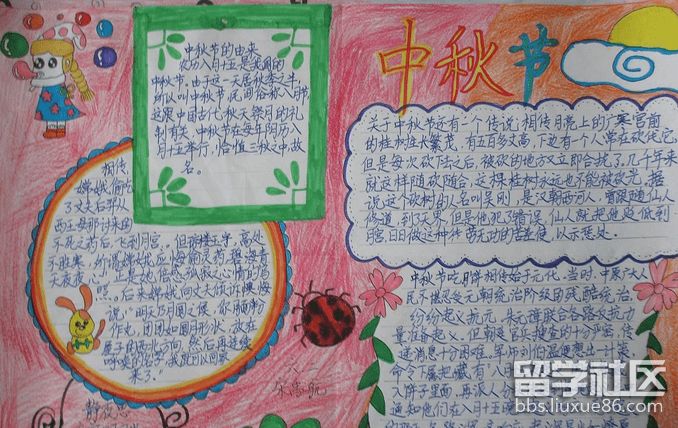 中秋节
中秋节的由来
农历八月十五是我国的
中秋节。由于这一天居秋季之半
所以叫中秋节,民间俗称八月节
这跟中国古代秋天祭月的礼
制有关。中秋节在每年阴历八
月十五举行,恰值三秋之中,故
名。
关于中秋节还有一个传说,相传月亮上的广寒宫前
的桂树生长繁茂,有五百多丈高,下边有一个人常在砍伐它,
但是每次砍下去之后,被砍的地方又立即合拢了,几千年来
就这样随砍随合,这棵桂树永远也不能被砍光。据
说这个砍树的人名叫吴刚,是汉朝西河人,曾跟随仙人
修道,到了天界,但是他犯了错误,仙人就把他贬低到
月宫,日日做这种徒劳无功的苦差使,以示惩处。
相传,
嫦娥偷吃
了丈夫后羿从
西王母那讨来的
不死之药后,飞到月宫。但琼楼玉宇,高处
不胜寒,所谓嫦娥应悔偷灵药,碧海青
天夜夜心,正是她倍感孤寂之心情的写
照。后来嫦娥向丈夫倾诉懊悔
说:"明天乃月圆之候,你用面粉
作丸,团团如圆月形状,放在
屋子的西北方向,然后再连续
呼唤我的名字,我就可以回家
来了。"
中秋节吃月饼相传始于元代,当时,中原广大人
民不堪忍受元朝统治阶级的残酷统治,
纷纷起义抗元。朱元璋联合各路反抗力
量准备起义。但朝廷官兵搜查的十分严密,传
递消息十分困难。军师刘伯温便想出一计策
命令下属把藏有"八
入饼子里面,再派人
通知他们在八月十五
留学社区
bbs.liuxue86.com